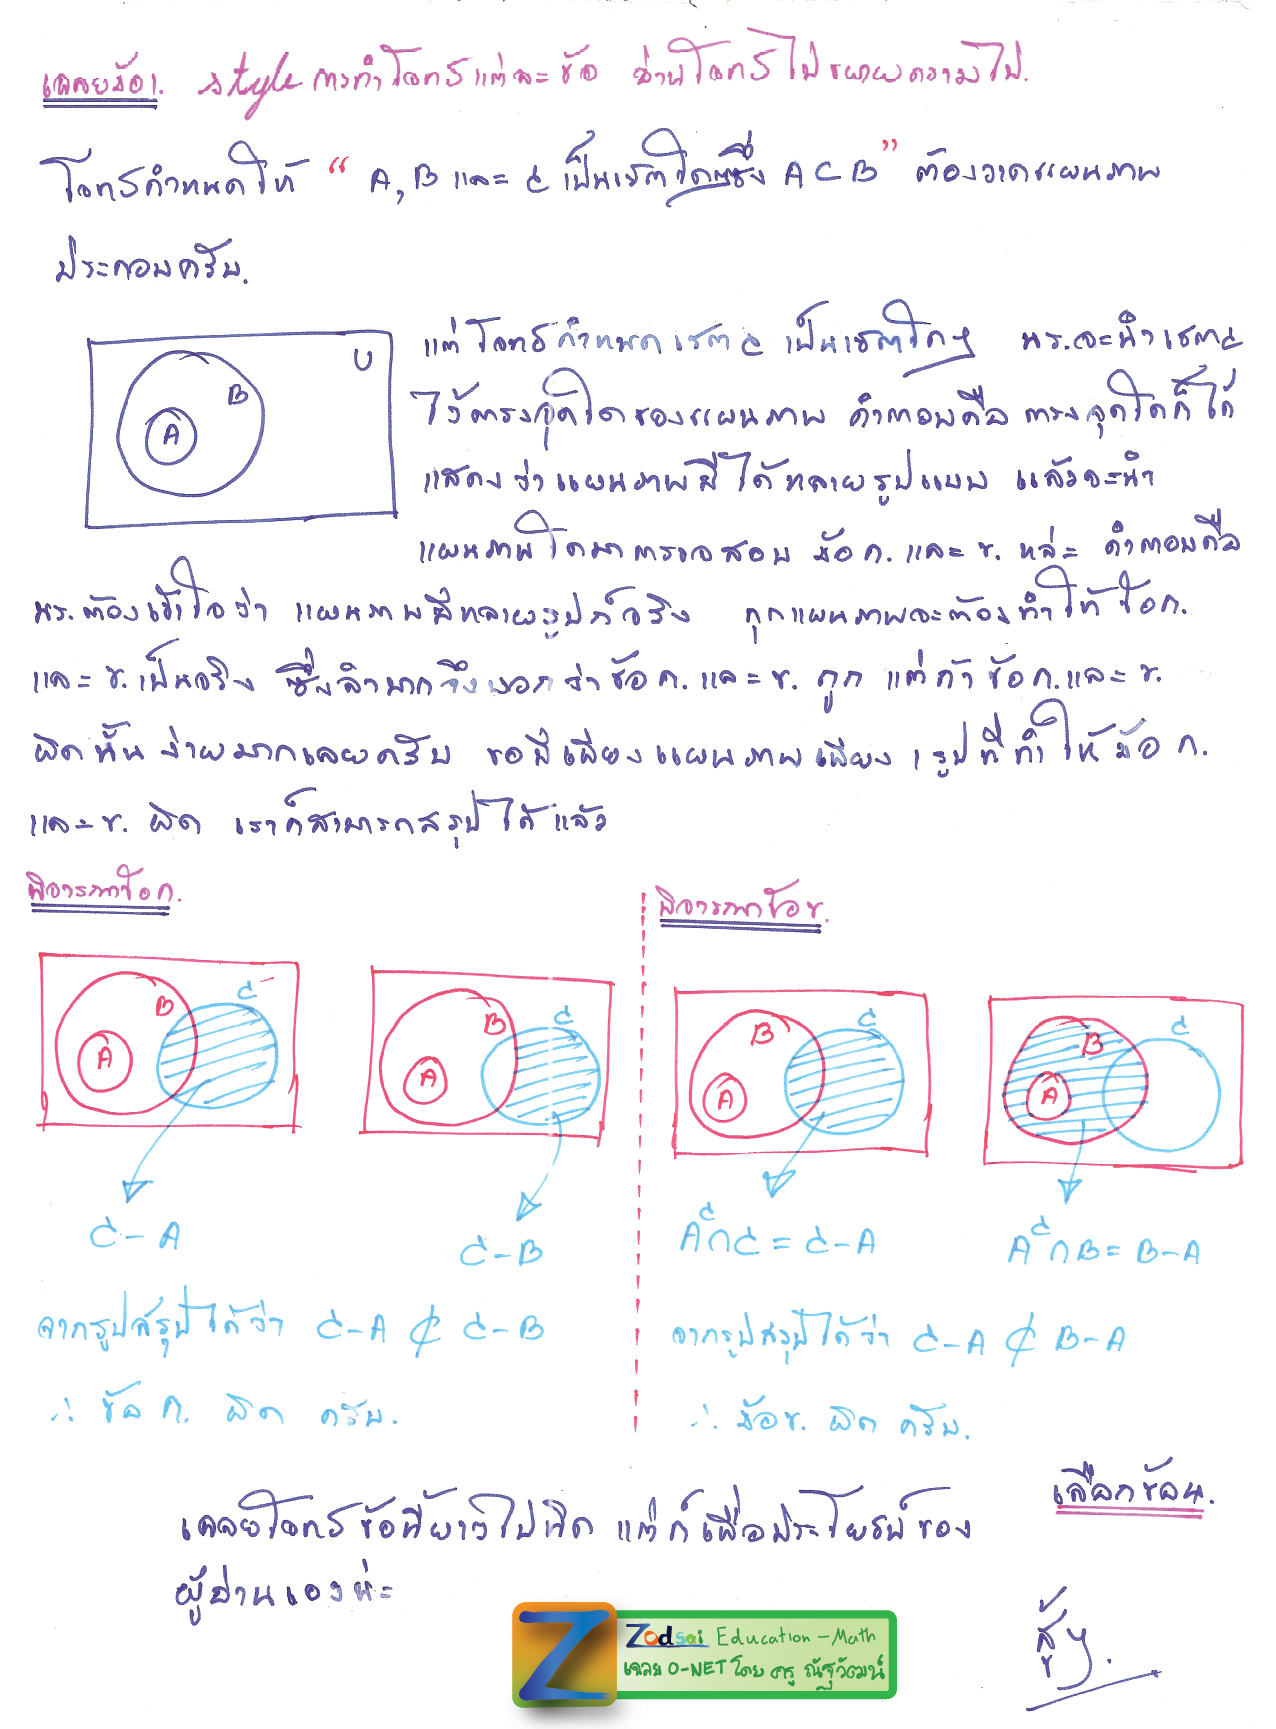 เฉลยข้อ 1. style การทำโจทย์แต่ละข้อ อ่านโจทย์ไปขยายความไป.
โจทย์กำหนดให้ “ A, B และ C เป็นเซตใดๆซึ่ง A ⊂ B ” ต้องวาดแผนภาพ
ประกอบครับ.
แต่โจทย์กำหนดเซต C เป็นเซตใดๆ นร.จะนำเซต C
ไว้ตรงจุดใดของแผนภาพ คำตอบคือ ตรงจุดใดก็ได้
แสดงว่าแผนภาพมีได้หลายรูปแบบ แล้วจะนำ
แผนภาพใดมาตรวจสอบ ข้อ ก. และ ข. หล่ะ คำตอบคือ
นร.ต้องเข้าใจว่า แผนภาพมีหลายรูปก็จริง ทุกแผนภาพจะต้องทำให้ ข้อ ก.
และ ข. เป็นจริง ซึ่งลำบากจึงบอกว่าข้อ ก. และ ข. ถูก แต่ถ้า ข้อ ก. และ ข.
ผิดนั้น ง่ายมากเลยครับ ขอมีเพียงแผนภาพเพียง 1 รูปที่ทำให้ ข้อ ก.
และ ข. ผิด เราก็สามารถสรุปได้แล้ว
U
B
A
พิจารณาข้อ ก.
B C
A
B C
A
C - A
C - B
จากรูปสรุปได้ว่า C - A ⊄ C - B
∴ ข้อ ก. ผิด ครับ.
พิจารณาข้อ ข.
B C
A
B C
A
Aᶜ∩C = C - A
Aᶜ∩B = B - A
จากรูปสรุปได้ว่า C - A ⊄ B - A
∴ ข้อ ข. ผิด ครับ.
เลือกข้อ 4.
เฉลยโจทย์ข้อนี้ยาวไปนิด แต่ก็เพื่อประโยชน์ของ
ผู้อ่านเองน่ะ
สู้ๆ.
Z
Zodsai Education - Math
เฉลย O-NET โดย ครู ณัฐวัฒน์